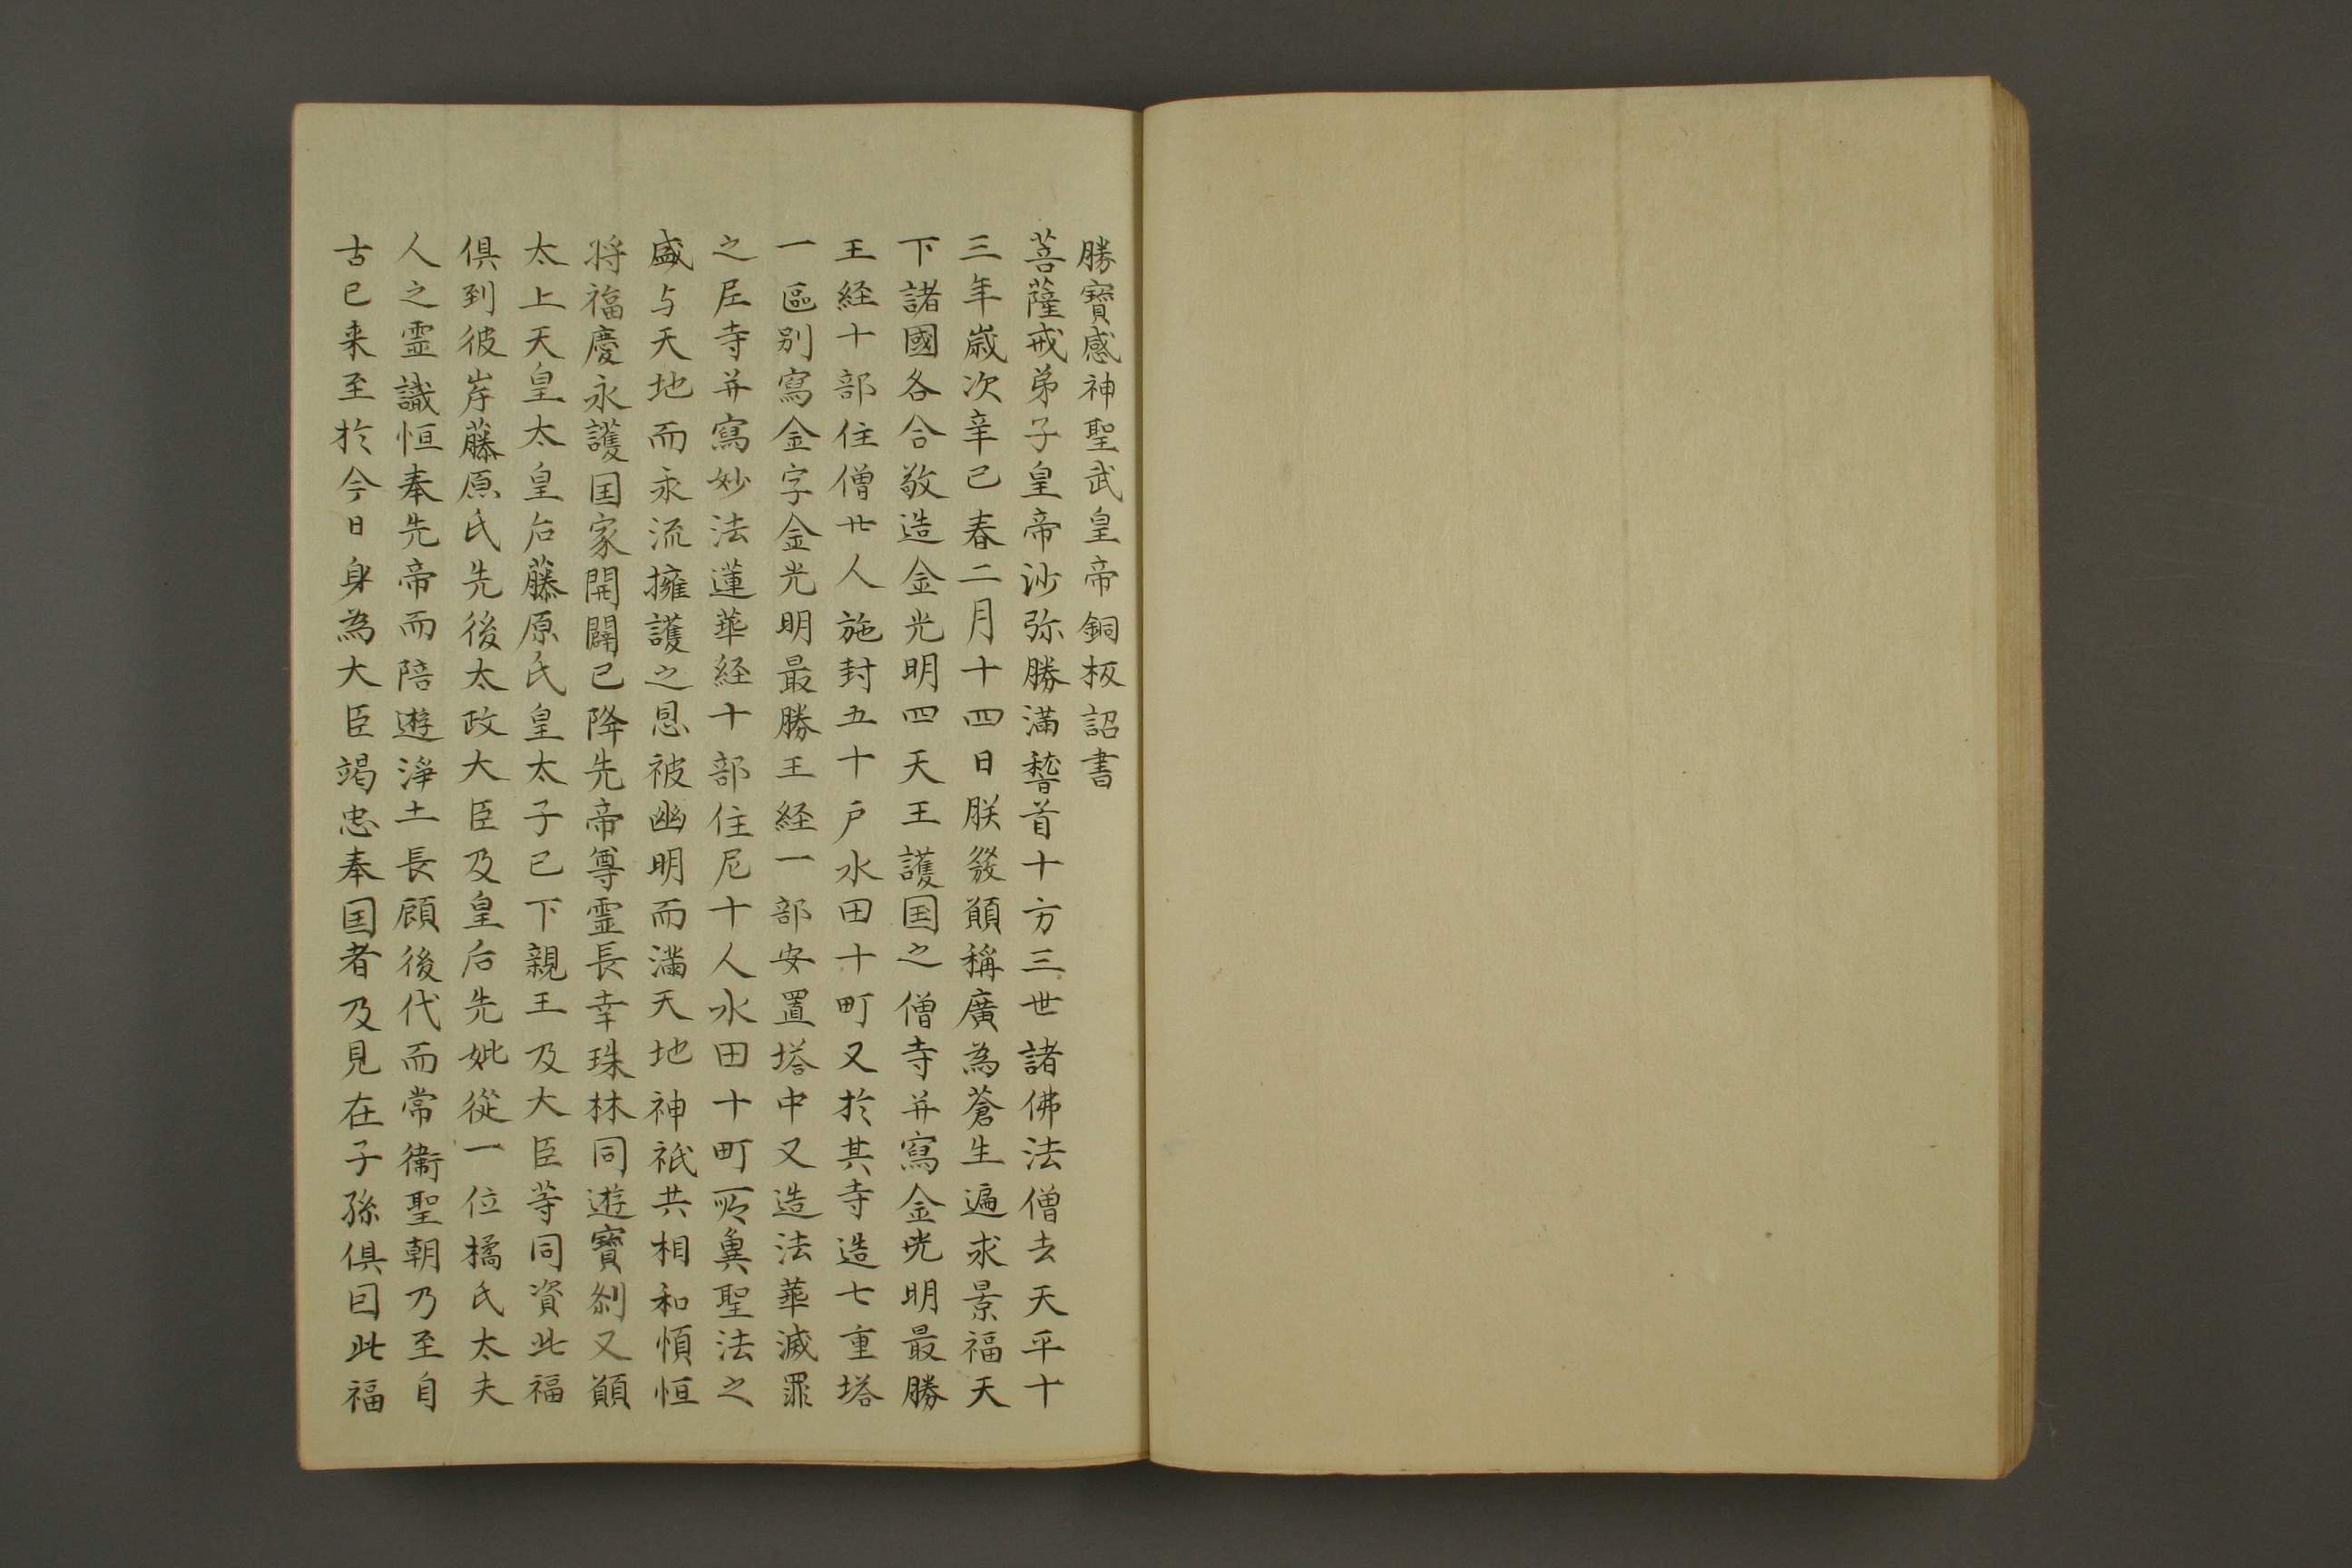 勝寶感神聖武皇帝銅板詔書
菩薩戒弟子皇帝沙弥勝滿稽首十方三世諸佛法僧去天平十
三年歳次辛巳春二月十四日朕發願稱廣為蒼生遍求景福天
下諸國各合敬造金光明四天王護国之僧寺并寫金光明最勝
王経十部住僧廿人施封五十戸水田十町又於其寺造七重塔
一區別寫金字金光明最勝王経一部安置塔中又造法華滅罪
之尼寺并寫妙法蓮華経十部住尼十人水田十町所冀聖法之
盛与天地而永流擁護之恩被幽明而滿天地神祇共相和順恒
将福慶永護国家開闢已降先帝尊霊長幸珠林同遊寶刹又願
太上天皇太皇后藤原氏皇太子已下親王及大臣等同資此福
倶到彼岸藤原氏先後太政大臣及皇后先妣從一位橘氏太夫
人之霊識恒奉先帝而陪遊淨土長顧後代而常衞聖朝乃至自
古已来至於今日身為大臣竭忠奉国者及見在子孫倶因此福